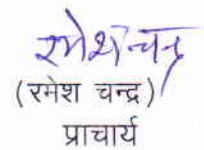 रमेश चन्द्र
(रमेश चन्द्र)
प्राचार्य